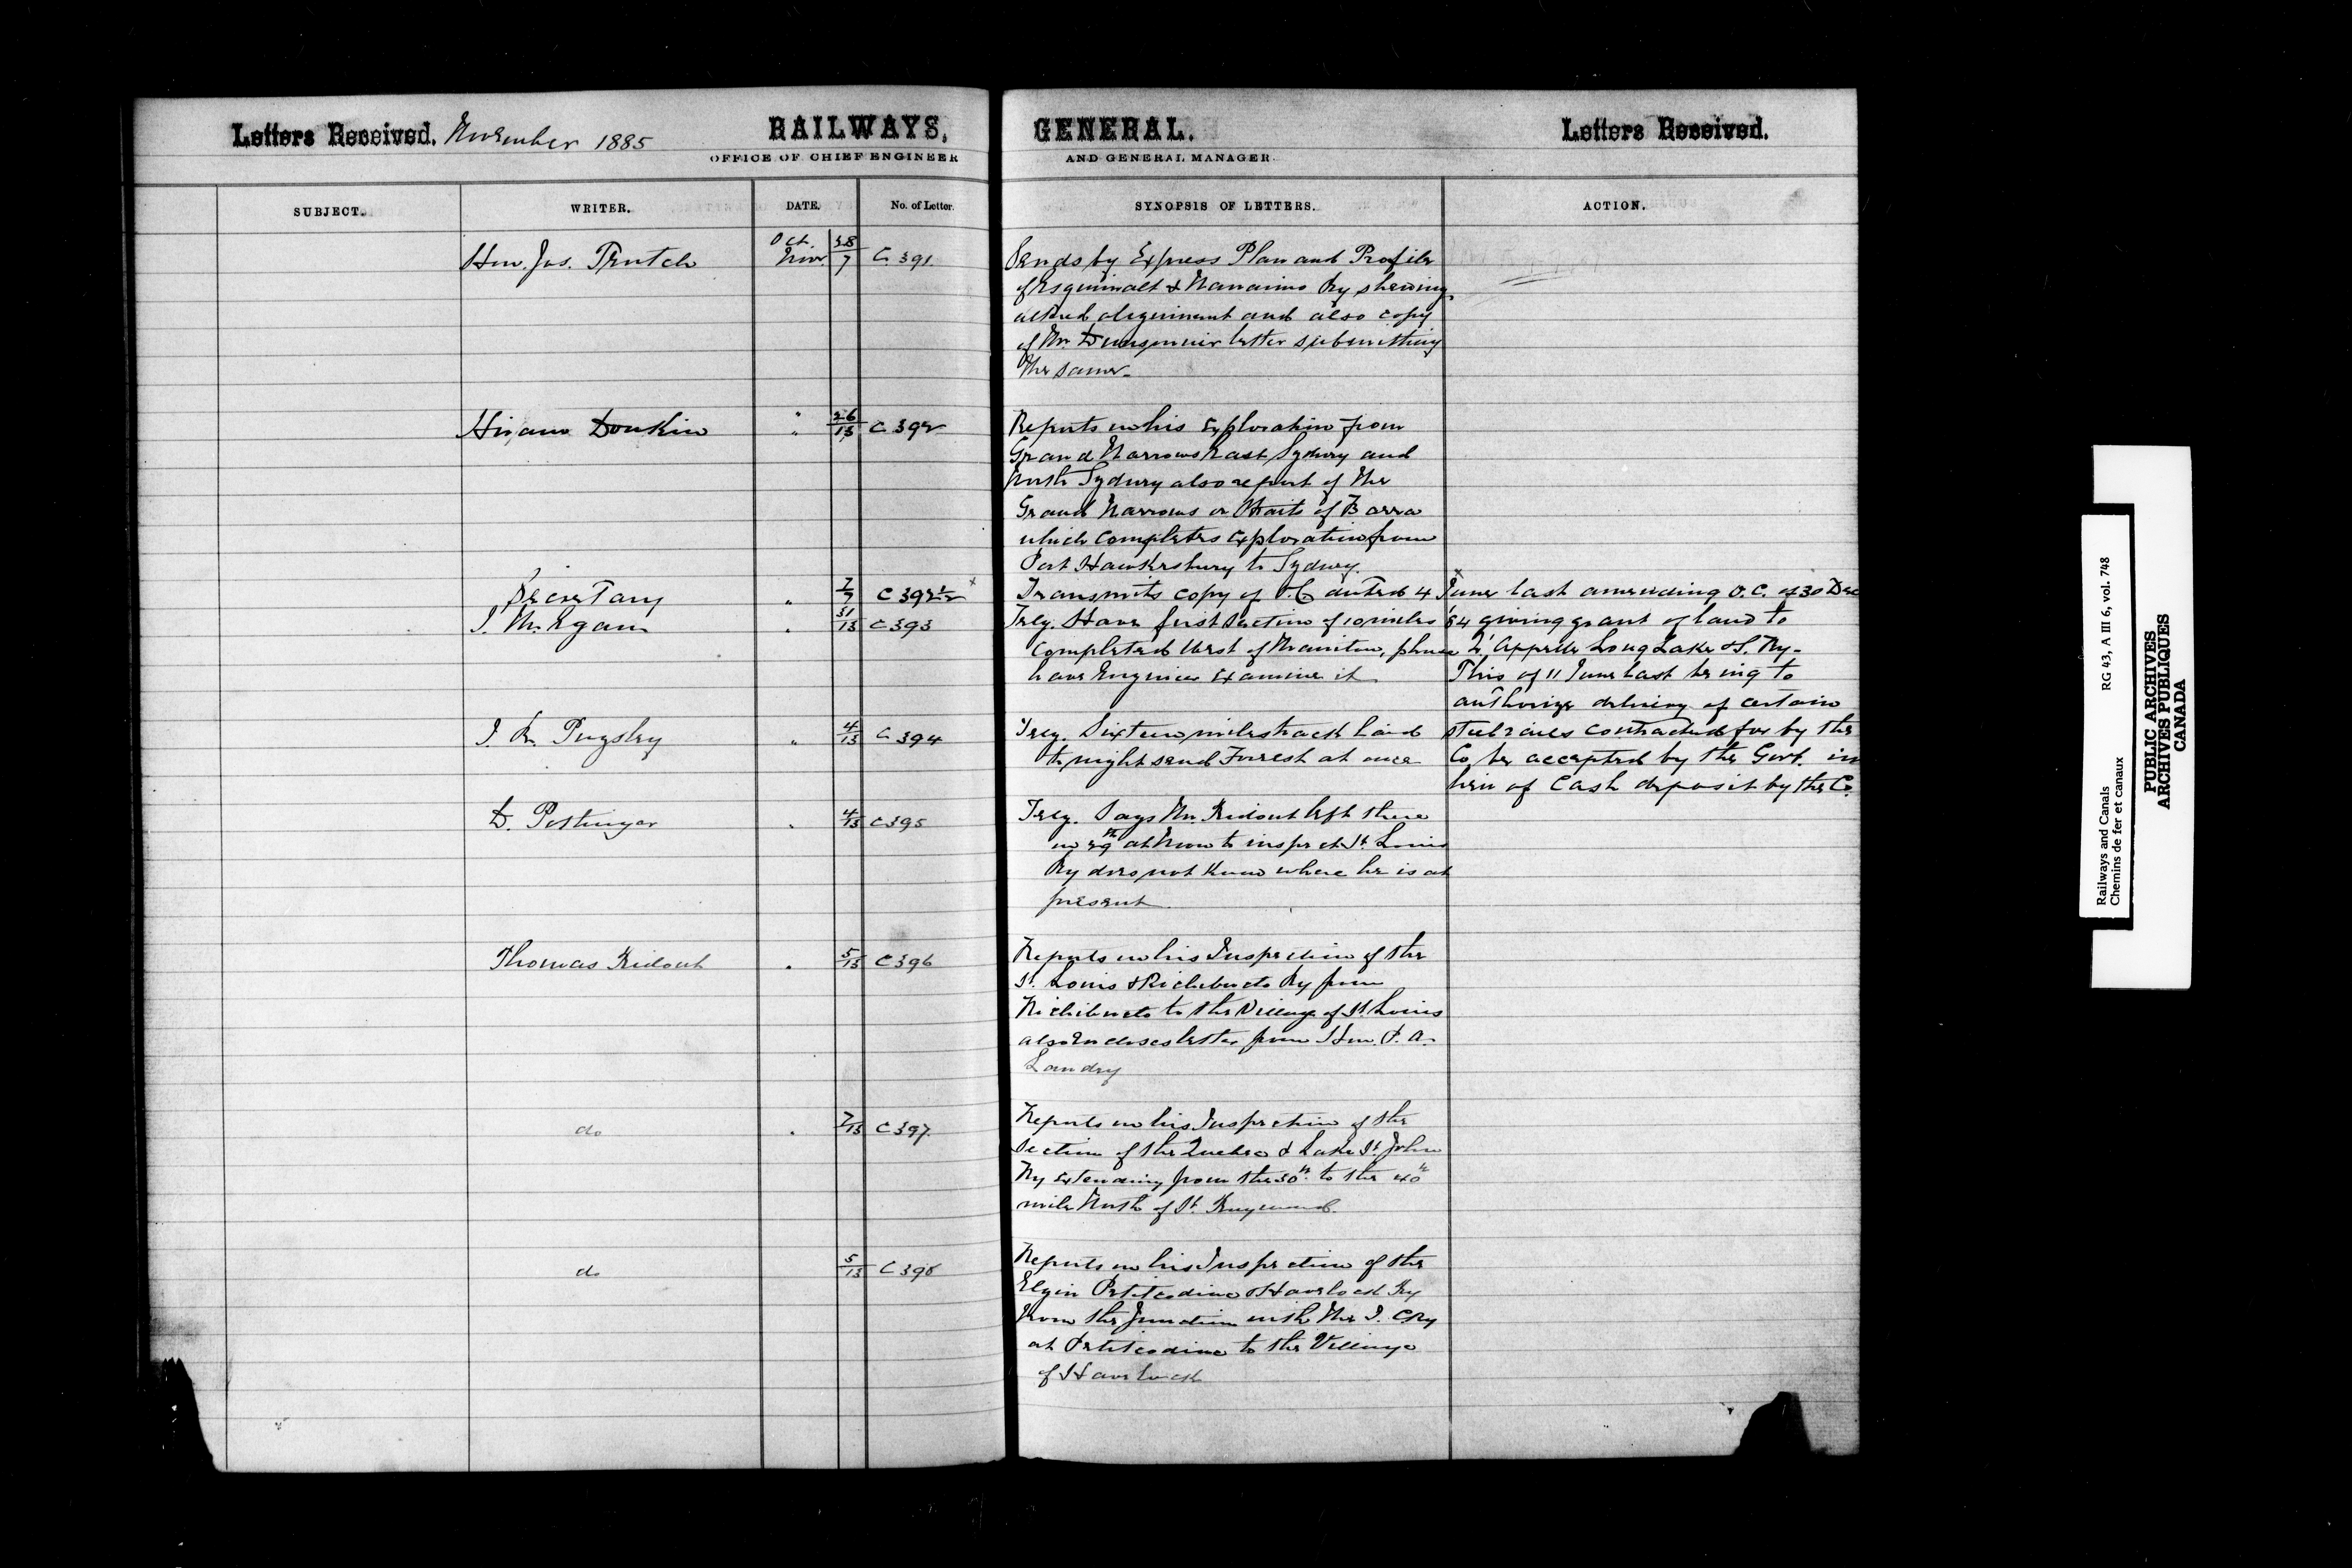 Letters Received. November 1885 RAILWAYS, GENERAL. Letters Received.
OFFICE OF CHIEF ENGINEER AND GENERAL MANAGER.
SUBJECT. WRITER. DATE. No. of Letter. SYNOPSIS OF LETTERS. ACTION.
Hon. Jos. Trutch Oct. 28 Nov. 7 C 391. Sends by Express Plan and Profile
of Esquimalt & Nanaimo Ry shewing
altered alignment and also copy
of Mr. Dunsmuir letter submitting
the same.
Hiram Donkin " 26 " 13 C 392 Reports on his Exploration from
Grand Narrows East Sydney and
North Sydney also report of the
Grand Narrows or Straits of Barra
which completes exploration from
Port Hawkesbury to Sydney.
Secretary " 7/7 C 392½ x Transmits copy of O.C. dated 4 June last amending O.C. of 30 Dec
J. M. Egan " 31/13 C 393 Teleg. Have first section of 10 miles 84 giving grant of land to
completed West of Manitou, please Q'Appelle Long Lake & S. Ry.
have Engineer Examine it This of 11 June last being to
authorize delivery of certain
J. R. Pugsley " 4/13 C 394 Teleg. Sixteen miles track laid steel rails contracted for by the
to night send Forrest at once Co. be accepted by the Govt. in
lieu of Cash deposit by the Co.
D. Pottinger " 4/13 C 395 Teleg. Says Mr. Ridout left there
on 29th at Noon to inspect St. Louis
Ry does not know where he is at
present
Thomas Ridout " 5/13 C 396 Reports on his Inspection of the
St. Louis & Richibucto Ry from
Richibucto to the Village of St. Louis
also Encloses letter from Hon. P. A.
Landry
do " 7/13 C 397. Reports on his Inspection of the
Section of the Quebec & Lake St. John
Ry extending from the 30th to the 40th
mile North of St. Raymond.
do 5/13 C 398 Reports on his Inspection of the
Elgin Petitcodiac & Havelock Ry
from the Junction with the I. C Ry
at Petitcodiac to the Village
of Havelock
Railways and Canals RG 43, A III 6, vol. 748
Chemins de fer et canaux
PUBLIC ARCHIVES
ARCHIVES PUBLIQUES
CANADA